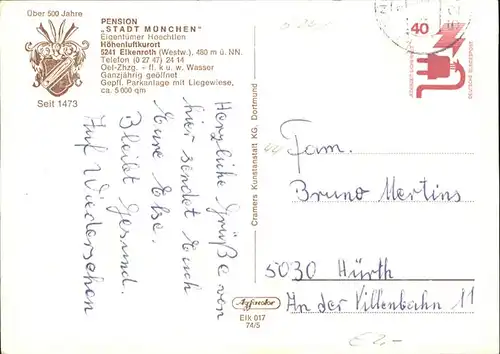 über 500 Jahre
Seit 1473
PENSION
„STADT MÜNCHEN"
Eigentümer Hoechtlen
Höhenluftkurort
5241 Elkenroth (Westw.), 480 m ü. NN.
Telefon (0 27 47) 24 14
Oel-Zhzg. - fl. k u. w. Wasser
Ganzjährig geöffnet
Gepfl. Parkanlage mit Liegewiese,
ca. 5 000 qm
Herzliche Grüße von
hier sendet Euch
Eure Else.
Bleibt Gesund.
Auf Wiedersehen
Cramers Kunstanstalt KG, Dortmund
40
DEUTSCHE BUNDESPOST
Fam.
Bruno Mertins
5030 Hürth
An der Villenbahn 11
Elk 017
74/5
€2,-